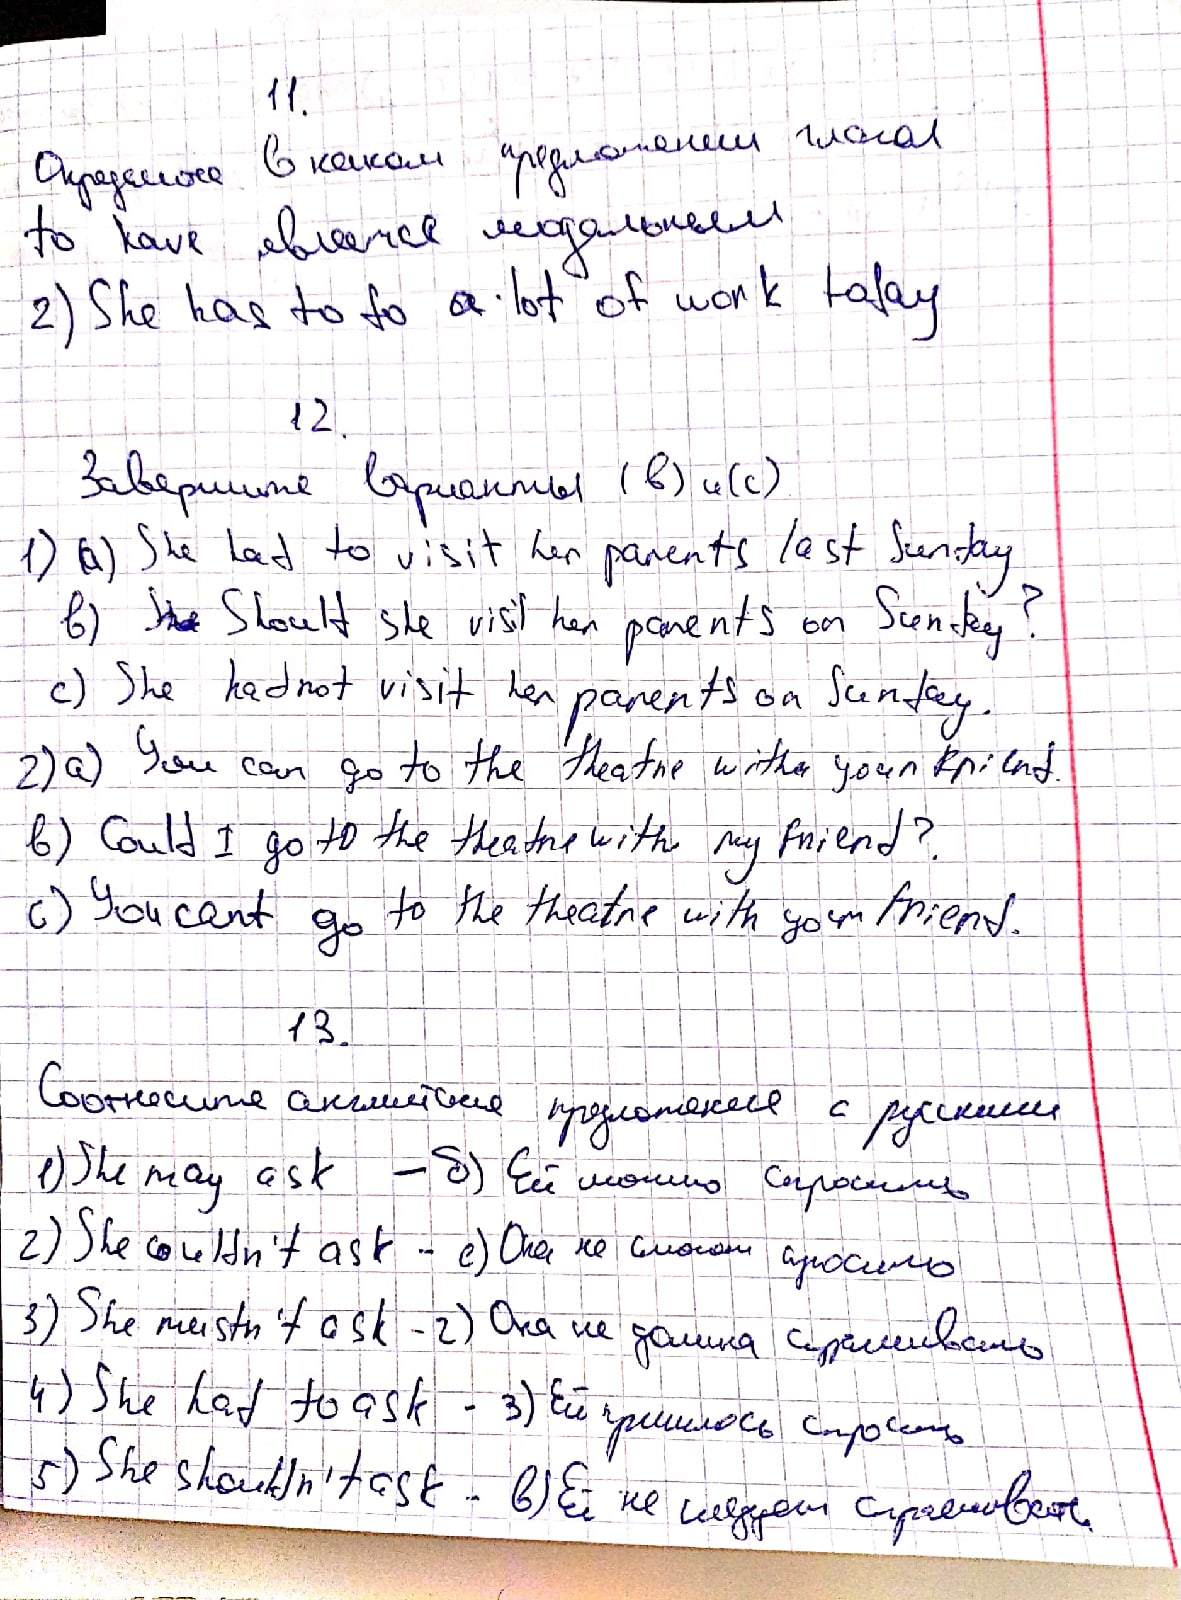 11.
Определите в каком предложении глагол
to have является модальным
2) She has to do a lot of work today
12.
Завершите варианты (в) и (с)
1) a) She had to visit her parents last Sunday
в) Should she visit her parents on Sunday?
c) She had not visit her parents on Sunday.
2) a) You can go to the theatre with your friend.
в) Could I go to the theatre with my friend?
c) You cant go to the theatre with your friend.
13.
Соотнесите английские предложения с русскими
1) She may ask – б) Ей можно спросить
2) She couldn't ask – е) Она не смогла спросить
3) She mustn't ask – г) Она не должна спрашивать
4) She had to ask – з) Ей пришлось спросить
5) She shouldn't ask – в) Ей не следует спрашивать.